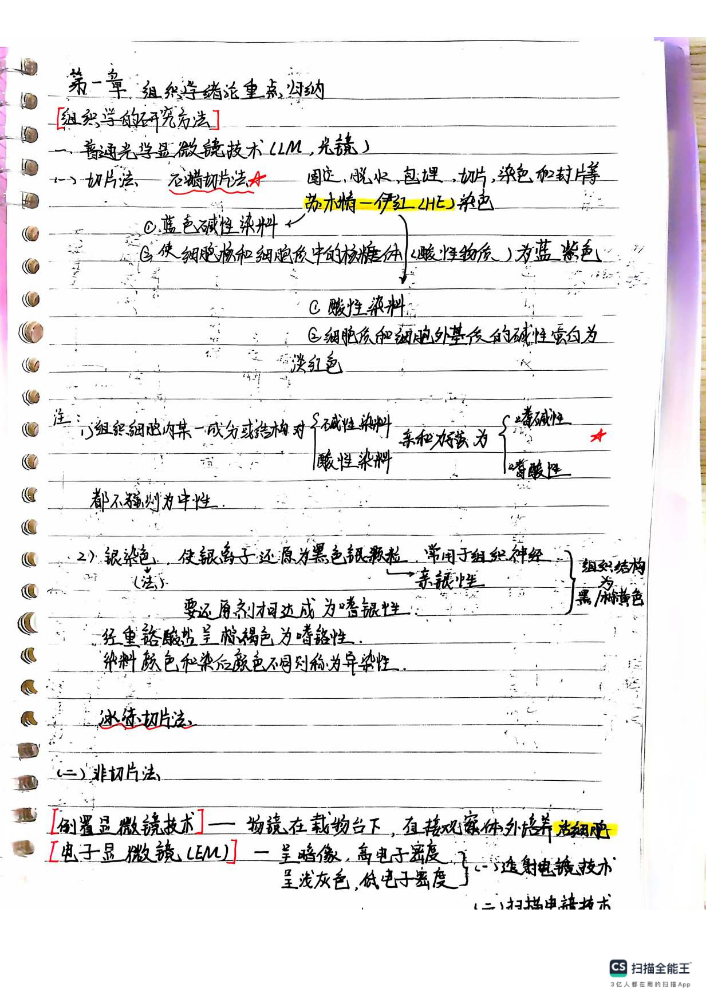 第一章 组织学绪论重点归纳
[组织学的研究方法]
一、普通光学显微镜技术(LM,光镜)
(一)切片法 石蜡切片法☆ 固定,脱水,包埋,切片,染色和封片等
苏木精—伊红(HE)染色
①蓝色碱性染料
②使细胞核和细胞质中的核糖体(酸性物质)为蓝紫色
①酸性染料
②细胞质和细胞外基质的碱性蛋白为
淡红色
注:
1)组织细胞内某一成分或结构对{碱性染料 酸性染料 亲和力强为{嗜碱性 嗜酸性 ☆
都不强则为中性.
2)银染色, 使银离子还原为黑色银颗粒,常用于组织神经
(法). →亲银性
要还原剂才可达成为嗜银性.
组织结构为黑/棕黄色
经重铬酸盐呈棕褐色为嗜铬性.
染料颜色和染后颜色不同则称为异染性.
冰冻切片法.
(二)非切片法
[倒置显微镜技术]—— 物镜在载物台下,直接观察体外培养活细胞
[电子显微镜(EM)] — 呈暗像,高电子密度
呈浅灰色,低电子密度 }(一)透射电镜技术
(二)扫描电镜技术
CS 扫描全能王
3亿人都在用的扫描App